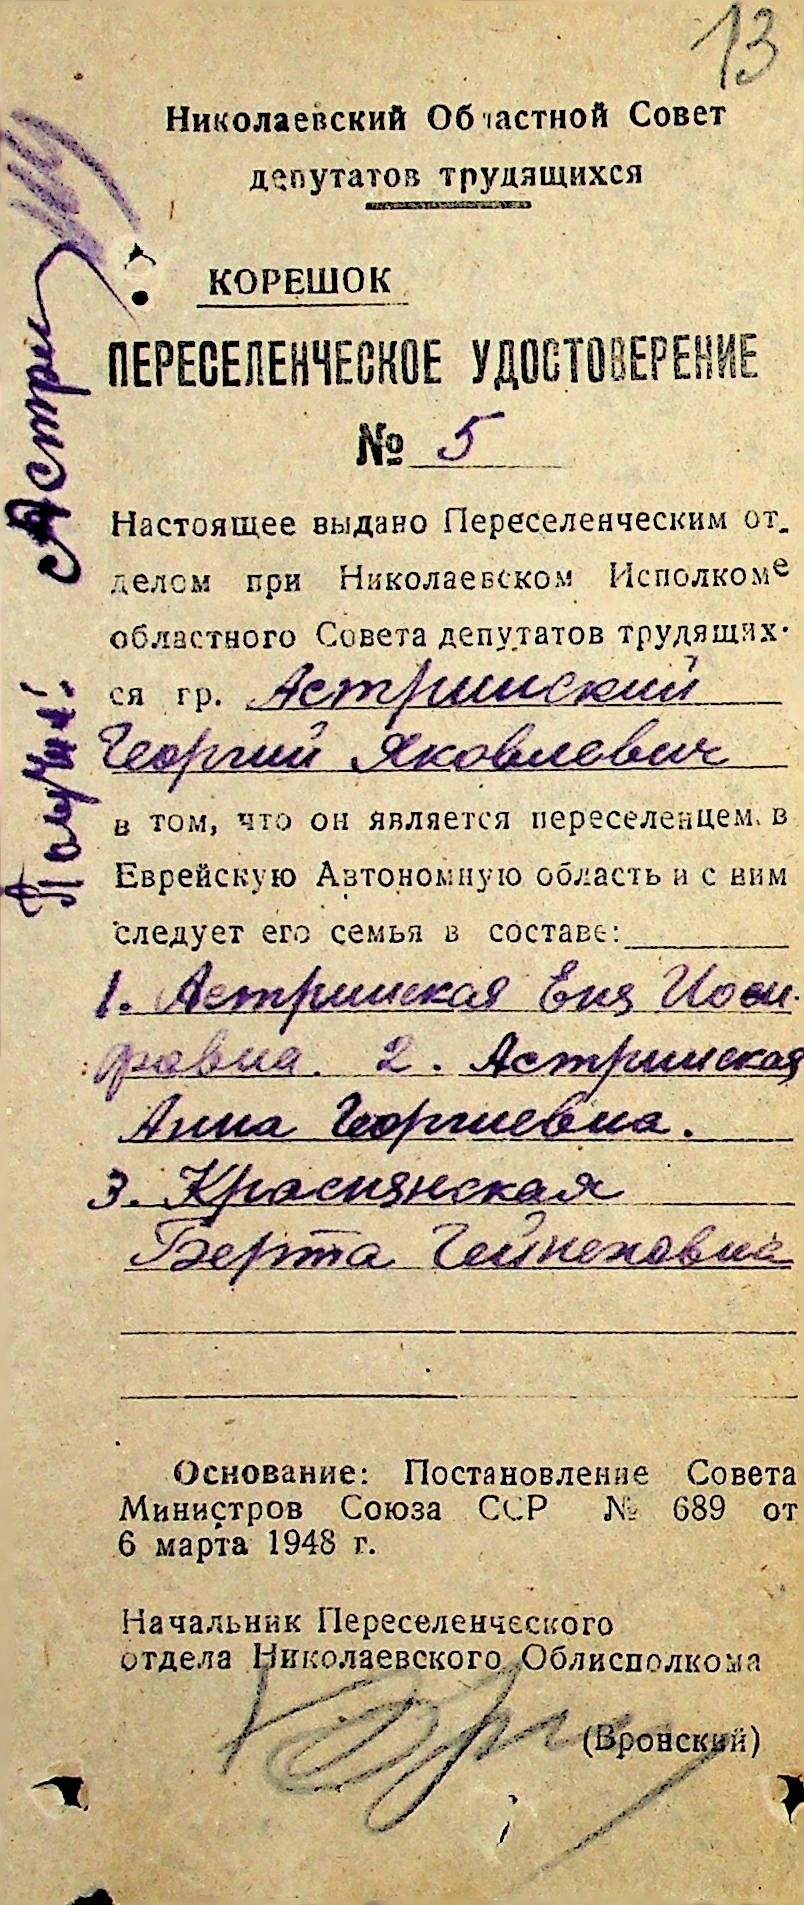 13
Николаевский Областной Совет
депутатов трудящихся
КОРЕШОК
ПЕРЕСЕЛЕНЧЕСКОЕ УДОСТОВЕРЕНИЕ
№ 5
Настоящее выдано Переселенческим от-
делом при Николаевском Исполкоме
областного Совета депутатов трудящих-
ся гр. Астринский
Георгий Яковлевич
в том, что он является переселенцем в
Еврейскую Автономную область и с ним
следует его семья в составе:
1. Астринская Еня Иоси-
фовна. 2. Астринская
Анна Георгиевна.
3. Краснянская
Берта Гейнеховна
Основание: Постановление Совета
Министров Союза ССР № 689 от
6 марта 1948 г.
Начальник Переселенческого
отдела Николаевского Облисполкома
(Вронский)
Получил: Астрин